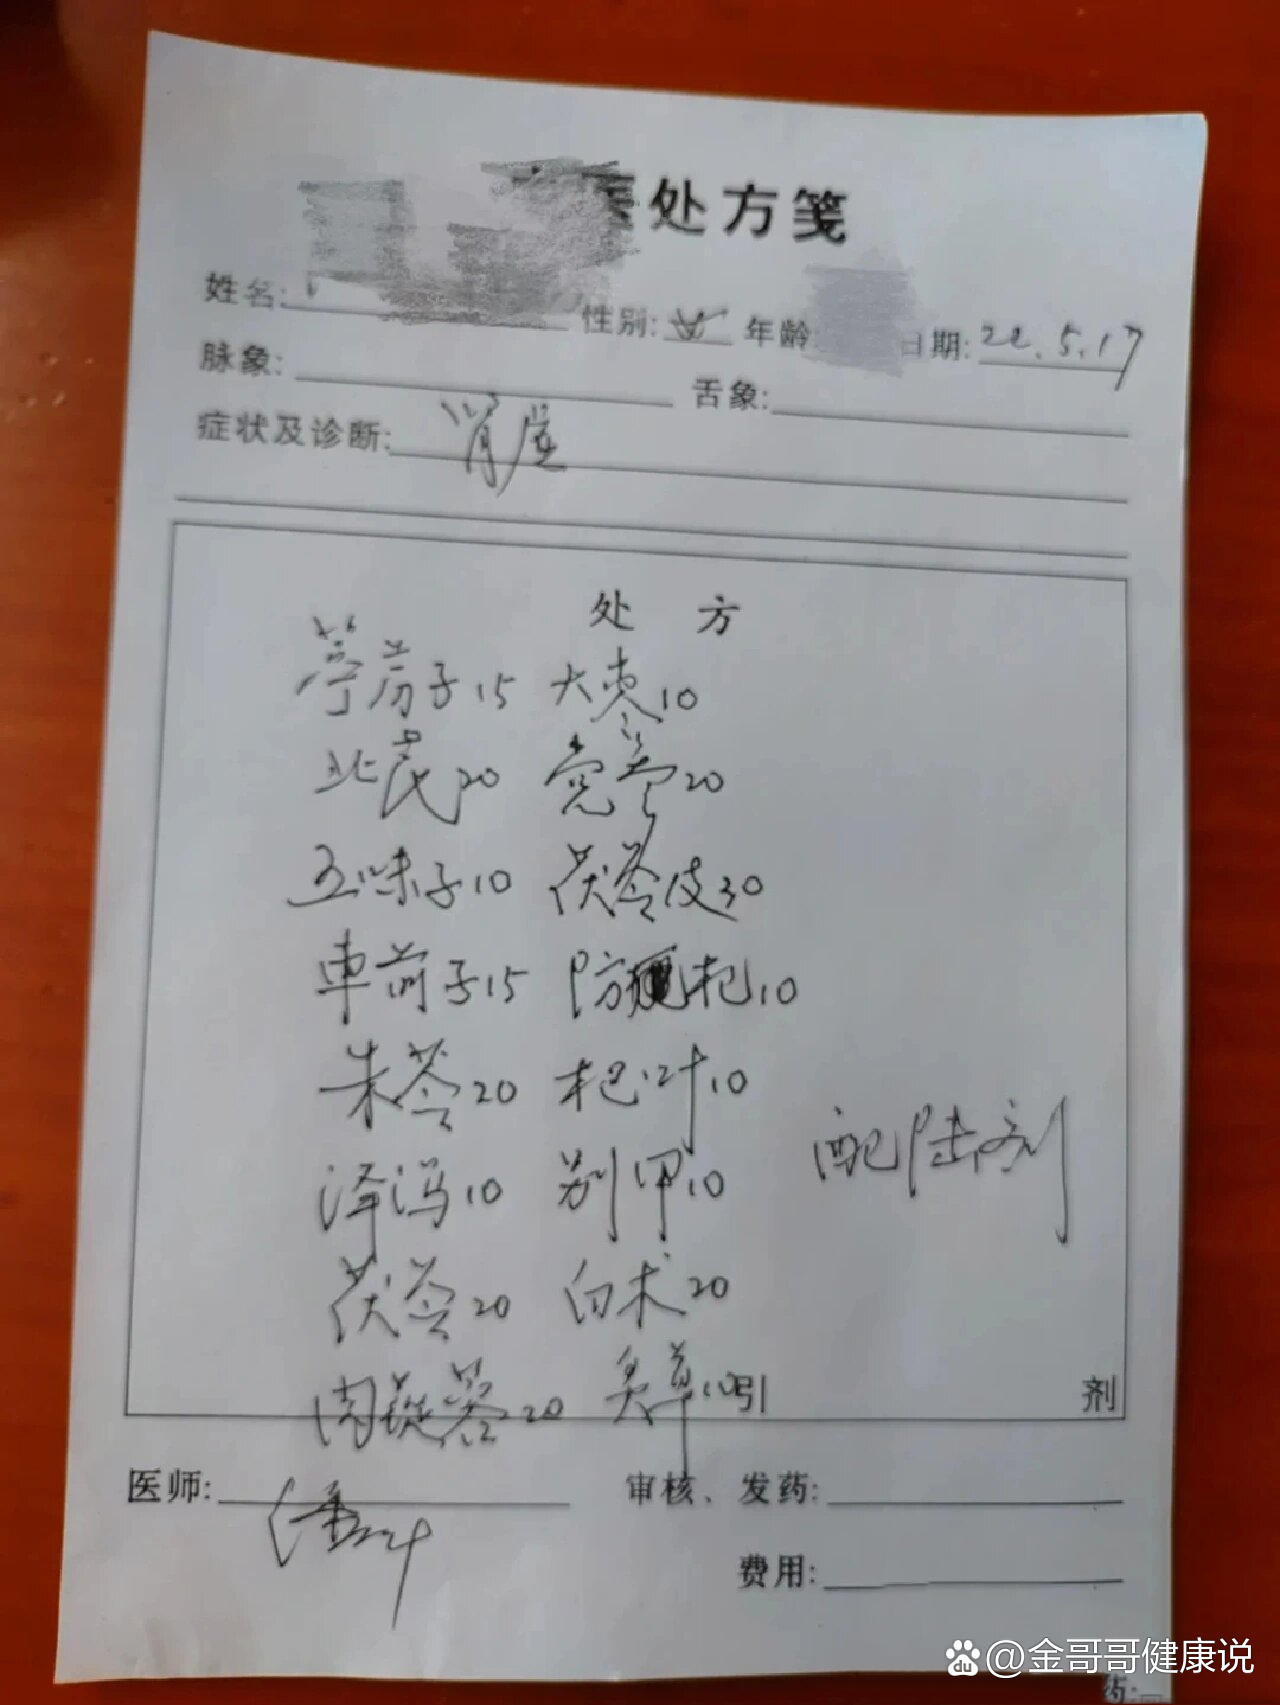 医处方笺
姓名: 性别:女 年龄: 日期:22.5.17
脉象: 舌象:
症状及诊断: 肾虚
处 方
葶苈子15 大枣10
北芪20 党参20
五味子10 茯苓皮30
车前子15 防杞10
朱苓20 杷叶10
泽泻10 别甲10
茯苓20 白术20
肉苁蓉20 炙草10引
配陆剂
剂
医师: 审核、发药:
费用:
药:
@金哥哥健康说